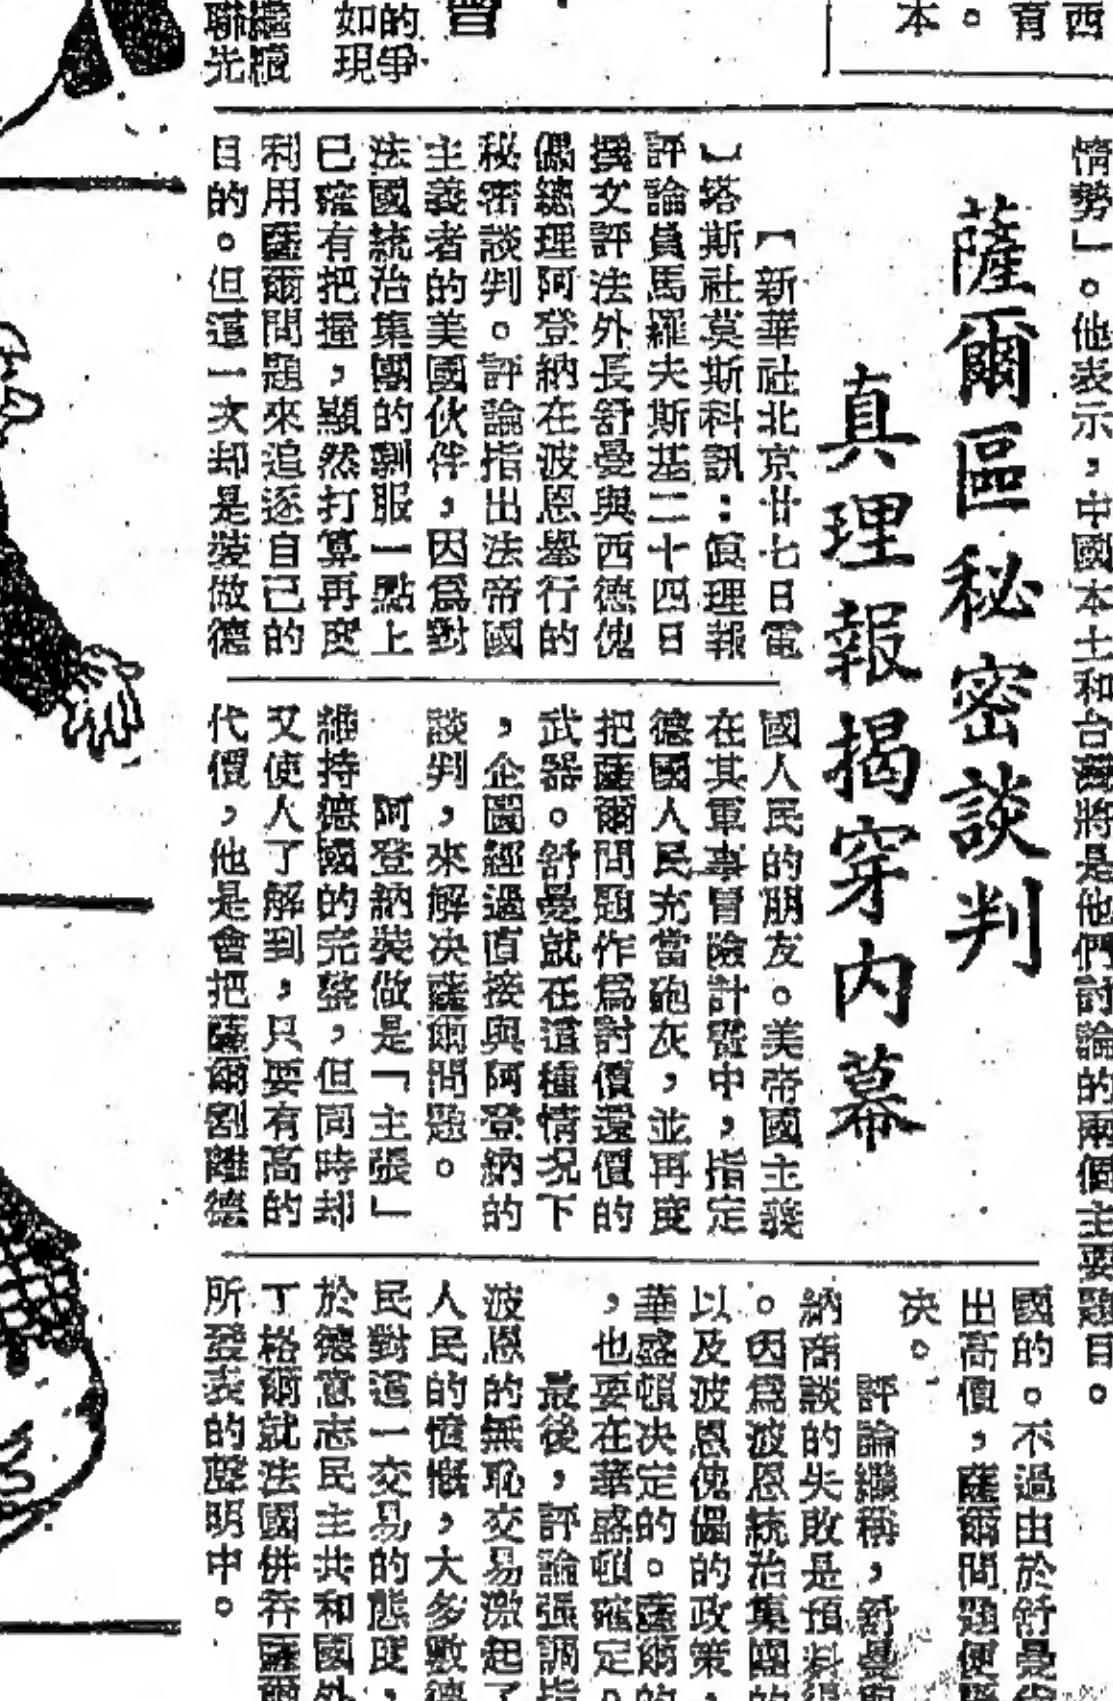 西
育
。
本
曾
的爭
如現
繼續
聯光
情勢」。他表示，中國本土和台灣將是他們討論的兩個主要題目。
薩爾區秘密談判
真理報揭穿內幕
【新華社北京廿七日電
】塔斯社莫斯科訊：眞理報
評論員馬羅夫斯基二十四日
撰文評法外長舒曼與西德傀
儡總理阿登納在波恩舉行的
秘密談判。評論指出法帝國
主義者的美國伙伴，因爲對
法國統治集團的馴服一點上
已確有把握，顯然打算再度
利用薩爾問題來追逐自己的
目的。但這一次却是裝做德
國人民的朋友。美帝國主義
在其軍事冒險計畫中，指定
德國人民充當砲灰，並再度
把薩爾問題作爲討價還價的
武器。舒曼就在這種情况下
，企圖經過直接與阿登納的
談判，來解决薩爾問題。
阿登納裝做是「主張」
維持德國的完整，但同時却
又使人了解到，只要有高的
代價，他是會把薩爾割離德
國的。不過由於舒曼
出高價，薩爾問題便
决。
評論繼稱，舒曼與
納商談的失敗是預料得
。因爲波恩統治集團的
以及波恩傀儡的政策，
華盛頓决定的。薩爾的
，也要在華盛頓確定。
最後，評論張調指
波恩的無恥交易激起了
人民的憤慨，大多數德
民對這一交易的態度，
於德意志民主共和國外
丁格爾就法國併吞薩爾
所發表的聲明中。